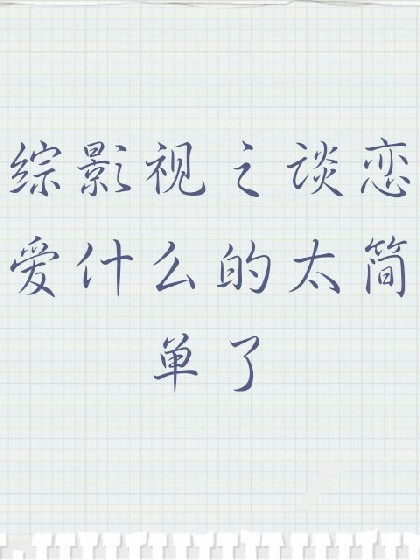 综影视之谈恋
爱什么的太简
单了